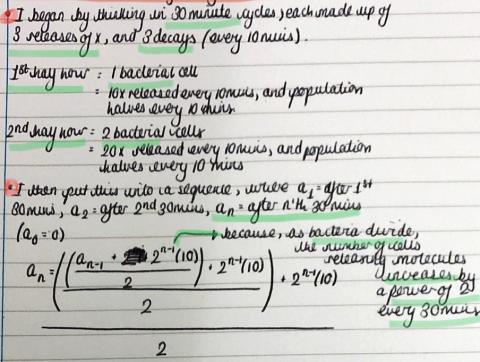 • I began by thinking in 30 minute cycles, each made up of
3 releases of x, and 3 decays (every 10 mins).
1st half hour = 1 bacterial cell
= 10x released every 10 mins, and population
halves every 10 mins
2nd half hour = 2 bacterial cells
= 20x released every 10 mins, and population
halves every 10 mins
• I then put this into a sequence, where a₁ = after 1st
30 mins, a₂ = after 2nd 30 mins, aₙ = after n'th 30 mins
(a₀ = 0)
because, as bacteria divide,
the number of cells
releasing molecules
increases by
a power of 2
every 30 mins
aₙ = (((aₙ₋₁ + 2ⁿ⁻¹(10))/2 + 2ⁿ⁻¹(10))/2 + 2ⁿ⁻¹(10))/2